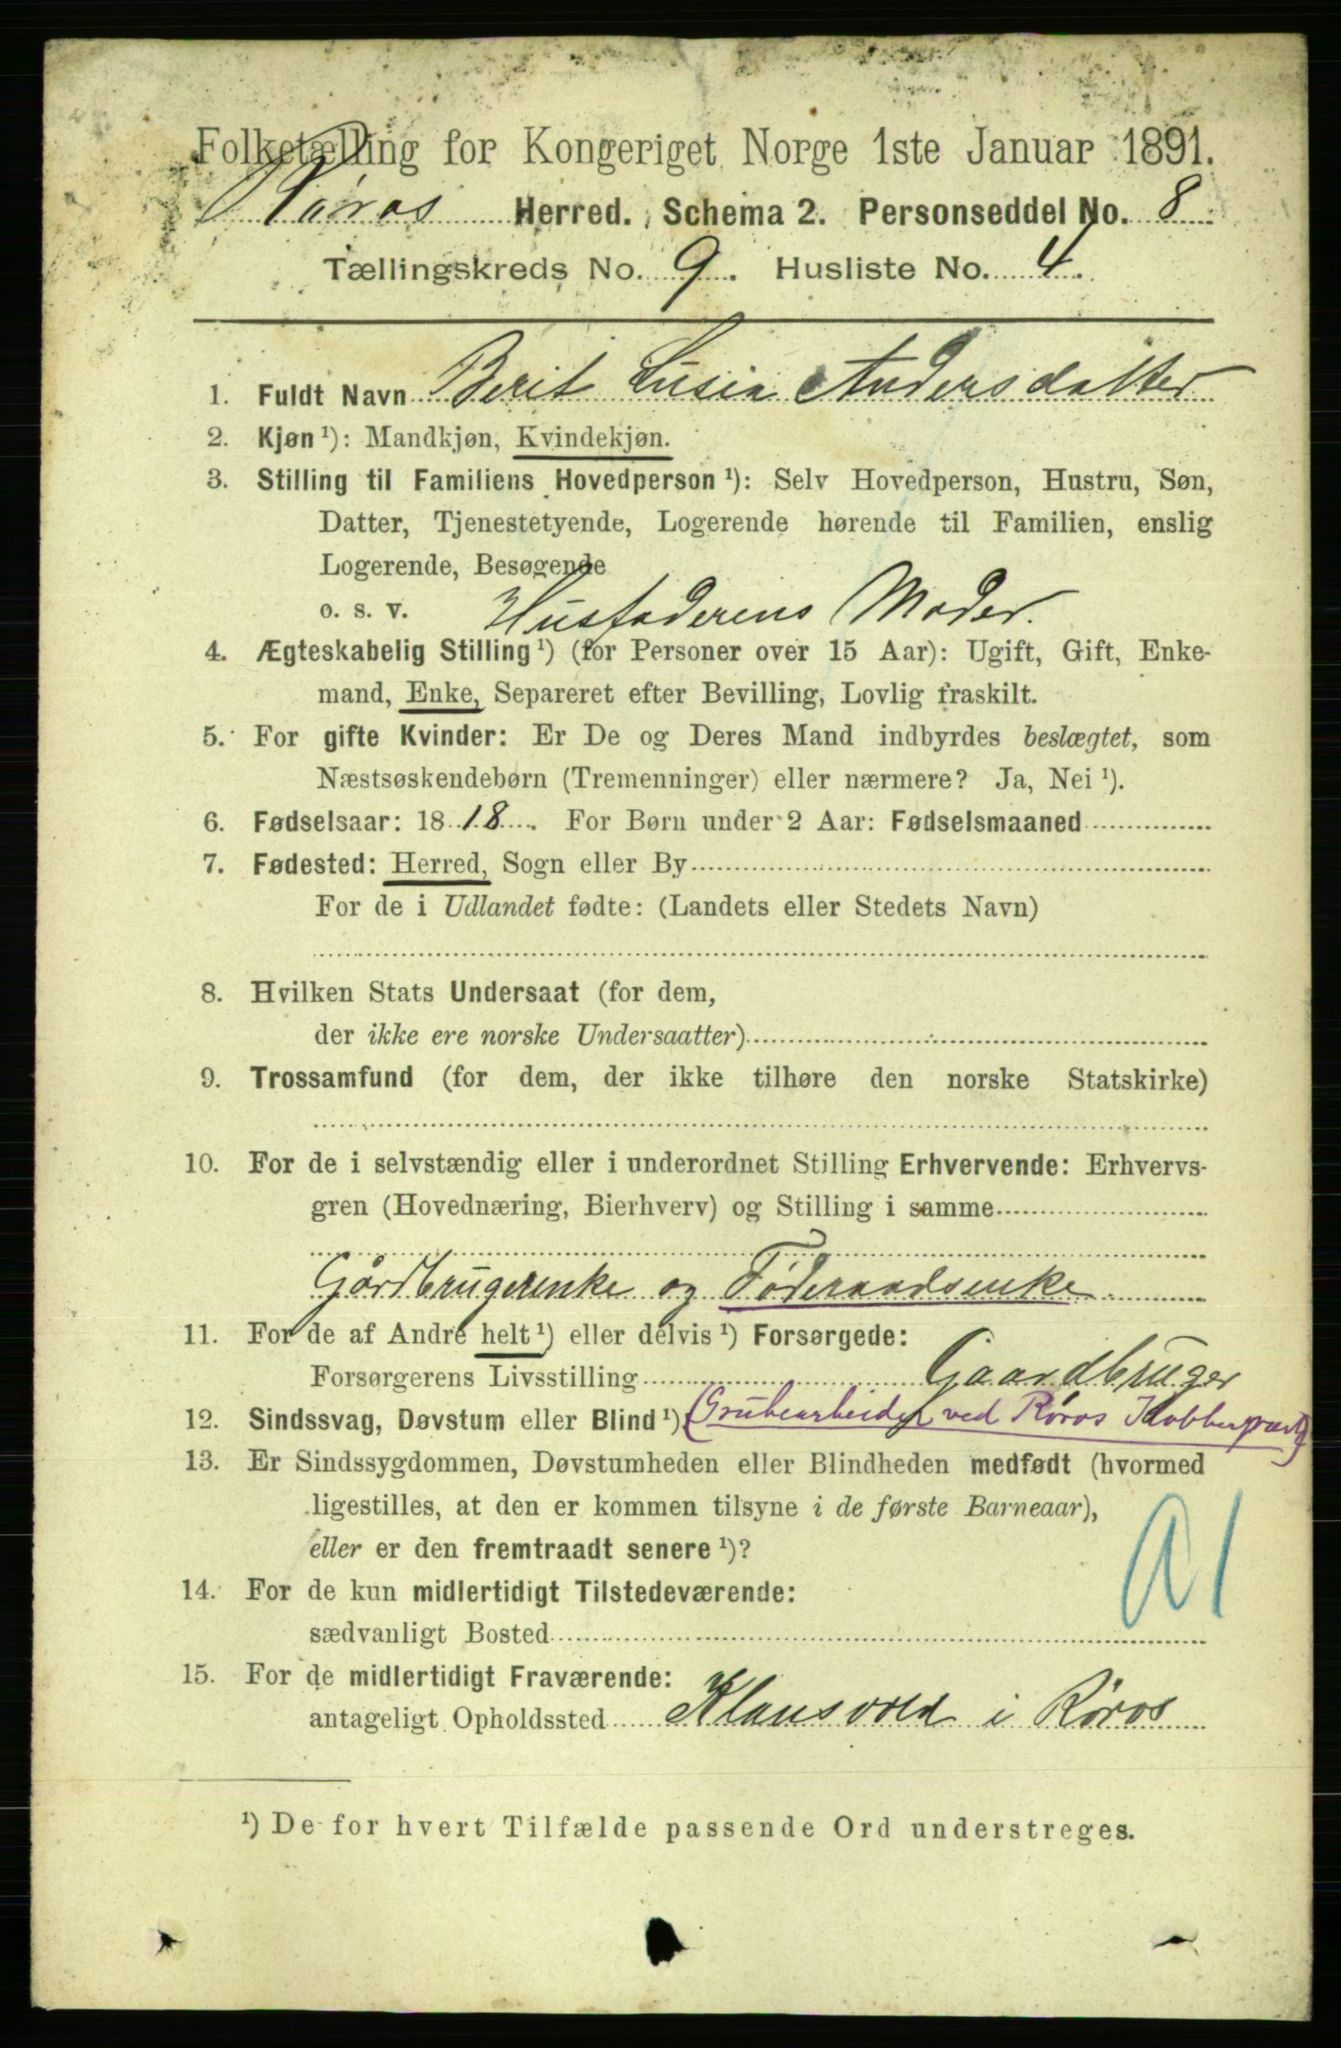 Folketælling for Kongeriget Norge 1ste Januar 1891.
Røros Herred. Schema 2. Personseddel No. 8
Tællingskreds No. 9. Husliste No. 4.
1. Fuldt Navn Berit Lusia Andersdatter
2. Kjøn ¹): Mandkjøn, Kvindekjøn.
3. Stilling til Familiens Hovedperson ¹): Selv Hovedperson, Hustru, Søn,
Datter, Tjenestetyende, Logerende hørende til Familien, enslig
Logerende, Besøgende
o. s. v. Husfaderens Moder.
4. Ægteskabelig Stilling ¹) (for Personer over 15 Aar): Ugift, Gift, Enke-
mand, Enke, Separeret efter Bevilling, Lovlig fraskilt.
5. For gifte Kvinder: Er De og Deres Mand indbyrdes beslægtet, som
Næstsøskendebørn (Tremenninger) eller nærmere? Ja, Nei ¹).
6. Fødselsaar: 1818. For Børn under 2 Aar: Fødselsmaaned
7. Fødested: Herred, Sogn eller By
For de i Udlandet fødte: (Landets eller Stedets Navn)
8. Hvilken Stats Undersaat (for dem,
der ikke ere norske Undersaatter)
9. Trossamfund (for dem, der ikke tilhøre den norske Statskirke)
10. For de i selvstændig eller i underordnet Stilling Erhvervende: Erhvervs-
gren (Hovednæring, Bierhverv) og Stilling i samme
Gårdbrugerenke og Føderaadsenke
11. For de af Andre helt ¹) eller delvis ¹) Forsørgede:
Forsørgerens Livsstilling Gaardbruger
12. Sindssvag, Døvstum eller Blind ¹) (Grubearbeider ved Røros Kobberværk)
13. Er Sindssygdommen, Døvstumheden eller Blindheden medfødt (hvormed
ligestilles, at den er kommen tilsyne i de første Barneaar),
eller er den fremtraadt senere ¹)?
A1
14. For de kun midlertidigt Tilstedeværende:
sædvanligt Bosted
15. For de midlertidigt Fraværende:
antageligt Opholdssted Klausvold i Røros
¹) De for hvert Tilfælde passende Ord understreges.